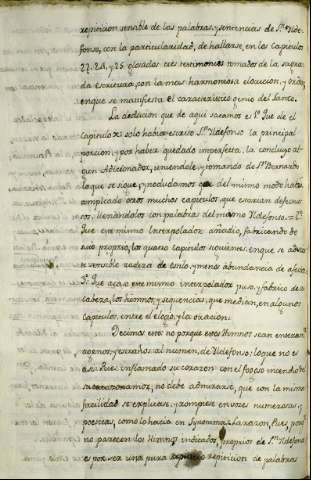 repeticion sensible de las palabras, y sentencias de Sn. Ilde-
fonso, con la particularidad, de hallarse, en los capitulos
22. 24, y 25 glosados tres testimonios tomados de la sagra-
da escritura, con la mesma harmoniosa elocucion, y orden
en que se manifiesta el caracteristico genio del Santo.
La deducion que de aqui sacamos es 1º que de el
capitulo solo havia escrito Sn. Ildefonso la principal
porcion, y por haber quedado imperfecta, la concluyó al-
gun Adicionador, uniendole, y tomando de Sn. Bernardo
lo que se sigue, y no dudamos que del mismo modo habrá
ampliado otros muchos capitulos, que estarian defectuo-
sos, llenandolos con palabras del mismo Ildefonso = 2º
Que este mismo Interpolador añadió, fabricando de
suio proprio, los quatro capitulos siguientes, en que se advier-
te sensible rudeza de estilo, y menos abundancia de afectos
3º Que acaso este mismo interpolador puso, y fabricó de su
cabeza, los himnos, y sequencias, que median, en algunos
capitulos, entre el elogio, y la oracion.
Decimos esto no porque estos Himnos sean enteram.te
agenos, y estraños al numen, de Ildefonso; lo que no es
asi. Pues inflamado su corazon con el fogoso incendio
no debe admirarse, que con la misma
facilidad se explicase, y rompiese en voces numerosas, y
poeticas, como lo hacia en Pero, pero
no parecen los Himnos indicados, proprios de Sn. Ildefonso
por ser una pura repeticion de palabras